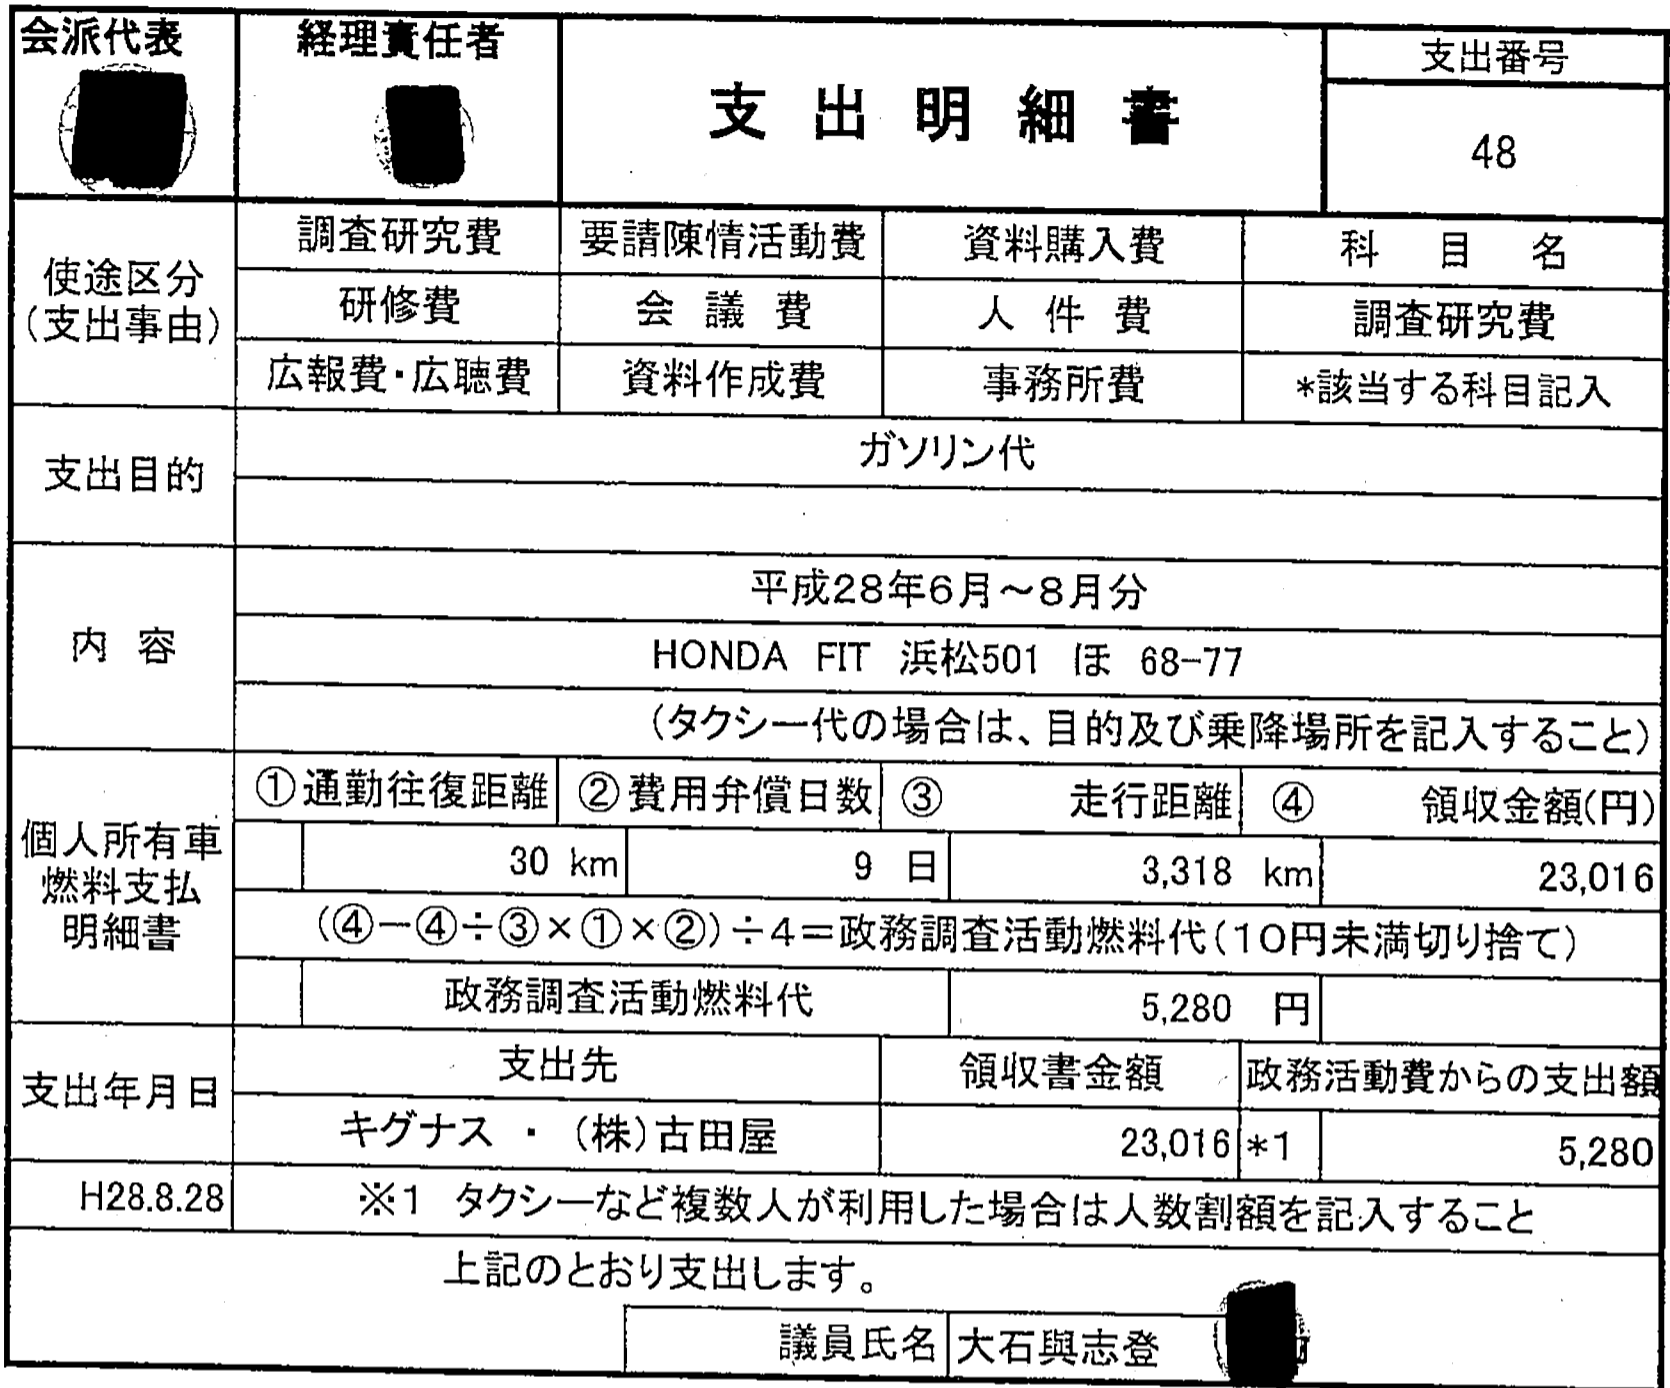 会派代表
経理責任者
支出明細書
支出番号
48
使途区分
(支出事由)
調査研究費
要請陳情活動費
資料購入費
科目名
研修費
会議費
人件費
調査研究費
広報費・広聴費
資料作成費
事務所費
*該当する科目記入
支出目的
ガソリン代
内容
平成28年6月～8月分
HONDA FIT 浜松501 ほ 68-77
(タクシー代の場合は、目的及び乗降場所を記入すること)
個人所有車
燃料支払
明細書
①通勤往復距離
②費用弁償日数
③ 走行距離
④ 領収金額(円)
30 km
9 日
3,318 km
23,016
(④-④÷③×①×②)÷4=政務調査活動燃料代(10円未満切り捨て)
政務調査活動燃料代
5,280 円
支出年月日
支出先
領収書金額
政務活動費からの支出額
キグナス ・ (株)古田屋
23,016
*1
5,280
H28.8.28
※1 タクシーなど複数人が利用した場合は人数割額を記入すること
上記のとおり支出します。
議員氏名
大石與志登